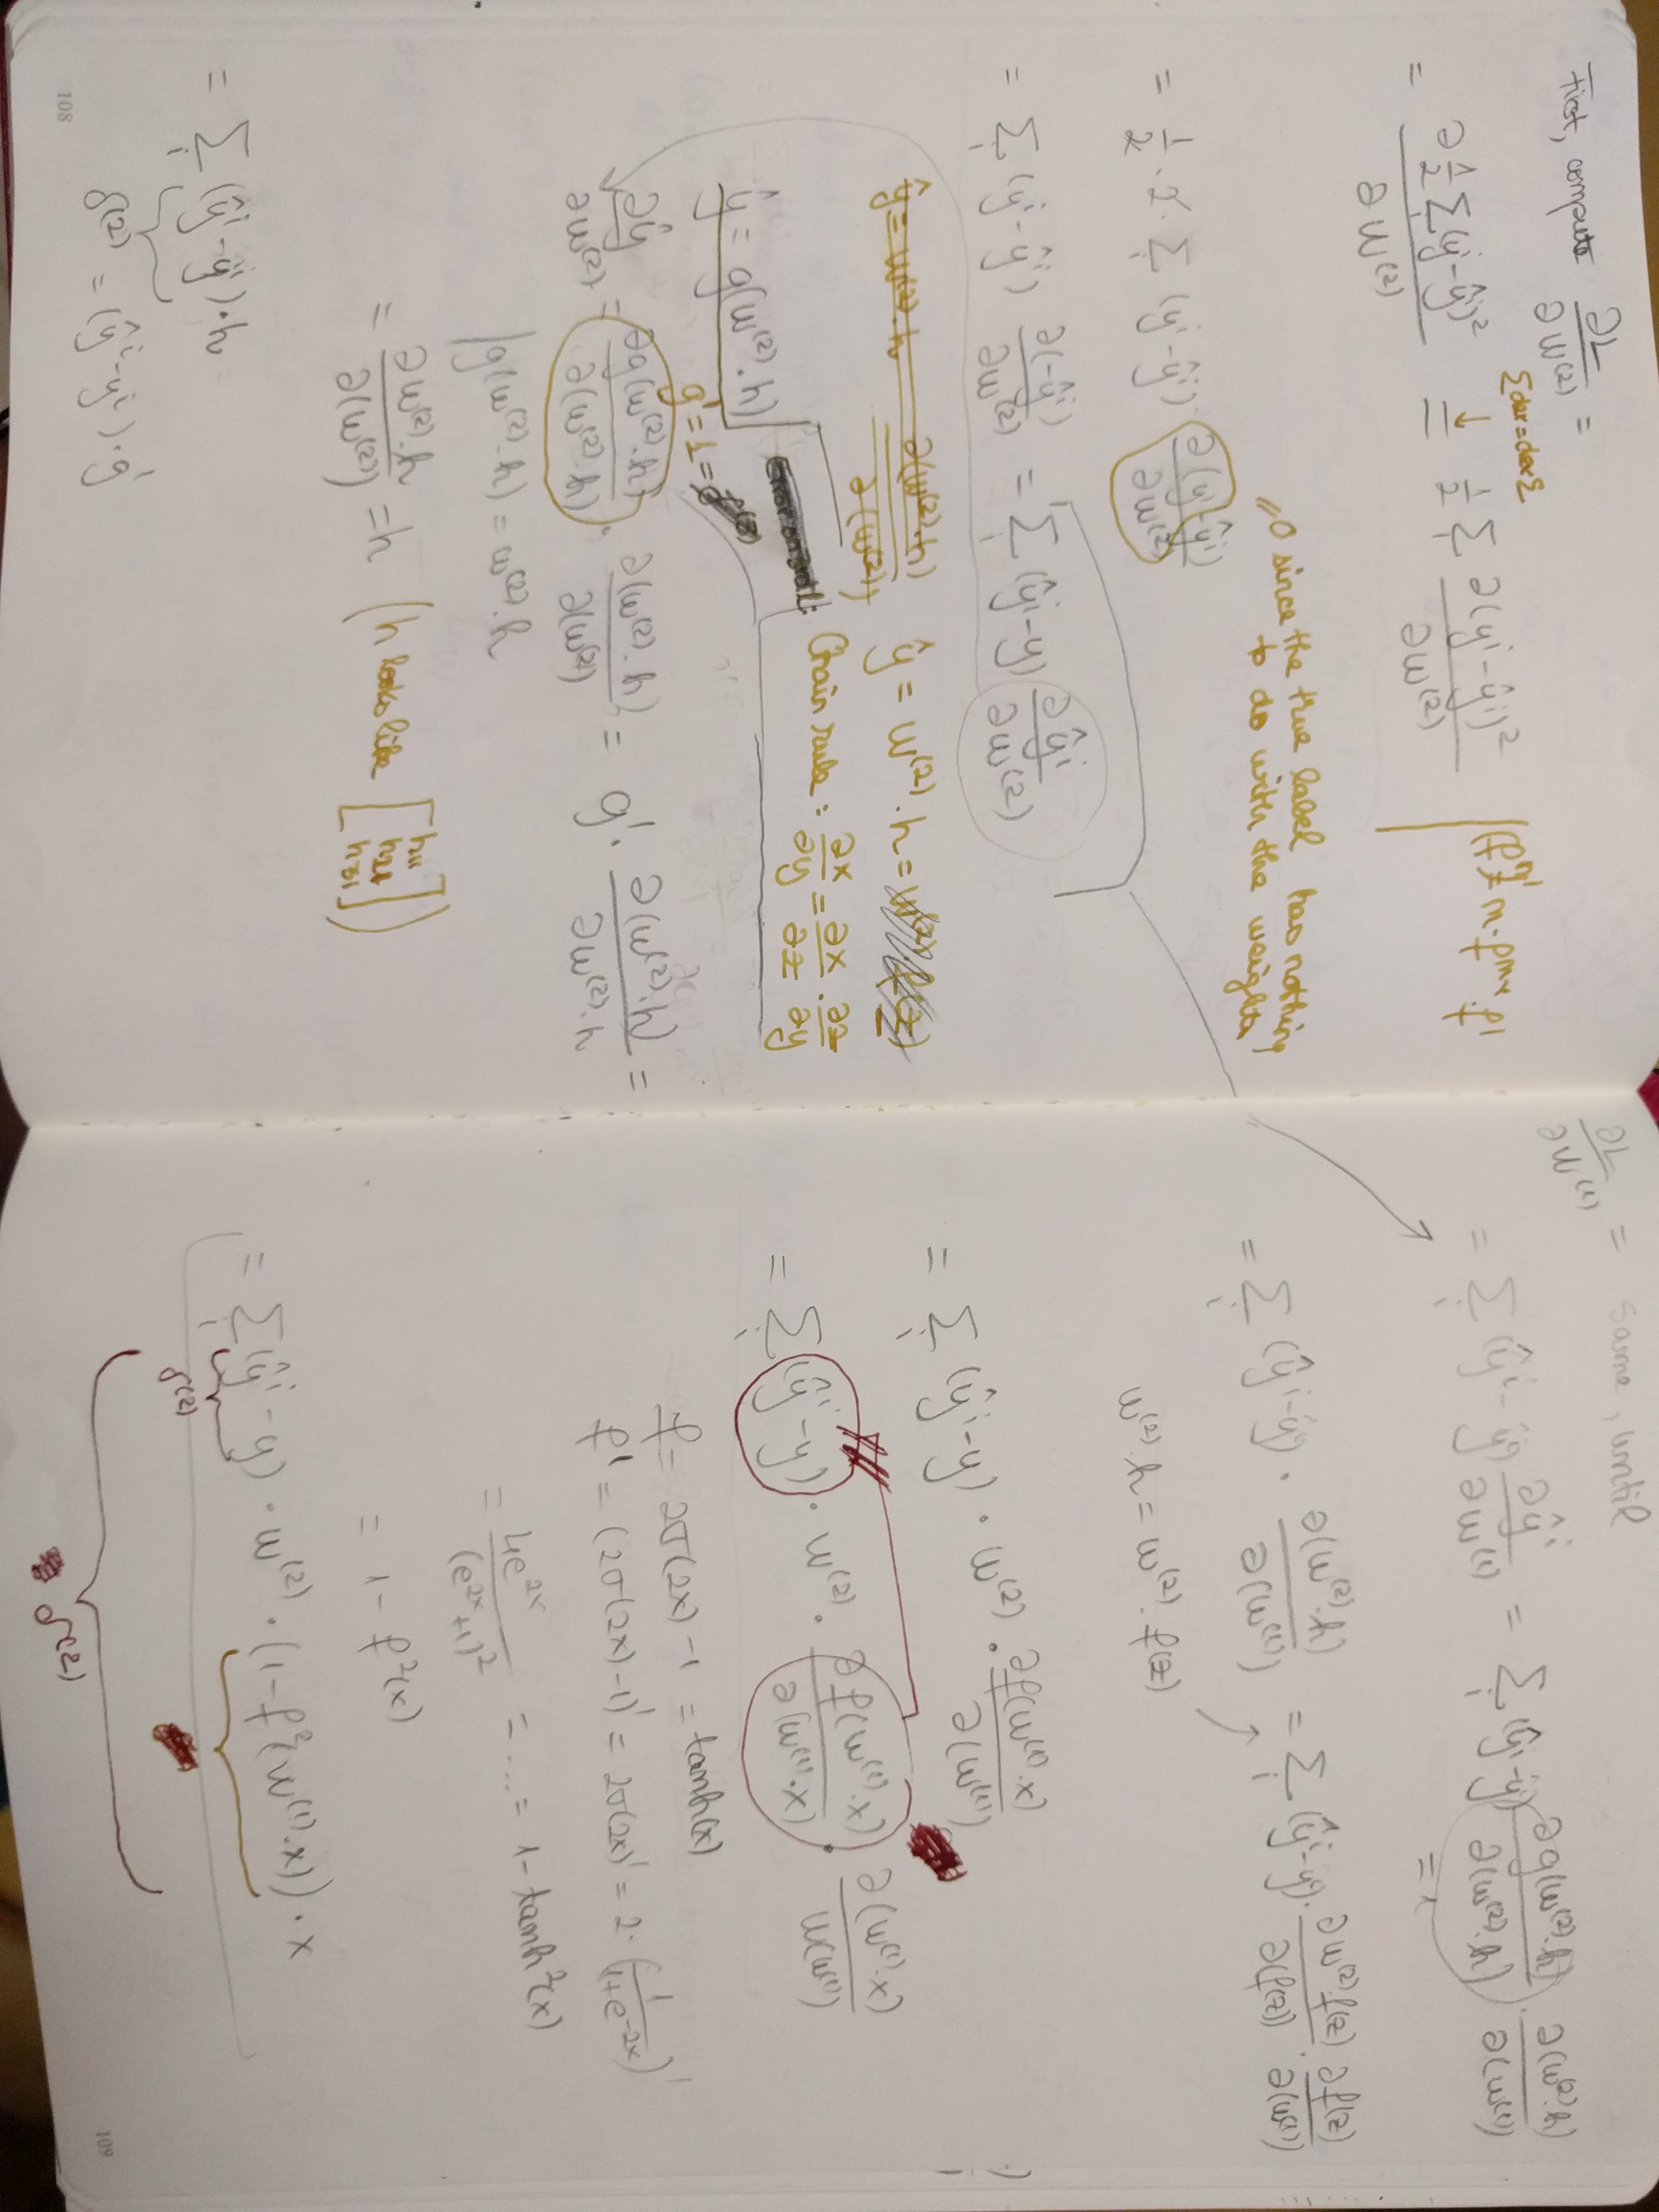 First, compute ∂L/∂W⁽²⁾ =
Σder=derΣ
↓
= ∂ 1/2 Σᵢ(yⁱ-ŷⁱ)² / ∂W⁽²⁾ = 1/2 Σᵢ ∂(yⁱ-ŷⁱ)²/∂W⁽²⁾
0 since the true label has nothing
to do with the weights
= 1/2 · 2 · Σᵢ (yⁱ-ŷⁱ) ∂(yⁱ-ŷⁱ)/∂W⁽²⁾
= Σᵢ (yⁱ-ŷⁱ) ∂(-ŷⁱ)/∂W⁽²⁾ = Σᵢ (ŷⁱ-y) ∂ŷⁱ/∂W⁽²⁾
ŷ = W⁽²⁾·h ∂(W⁽²⁾·h)/∂(W⁽²⁾) ŷ = W⁽²⁾·h =
Chain rule: ∂x/∂y = ∂x/∂z · ∂z/∂y
ŷ = g(W⁽²⁾·h)
g' = 1 =
∂ŷ/∂W⁽²⁾ = ∂g(W⁽²⁾·h)/∂(W⁽²⁾·h) · ∂(W⁽²⁾·h)/∂(W⁽²⁾) = g' · ∂(W⁽²⁾·h)/∂W⁽²⁾·h =
|g(W⁽²⁾·h) = W⁽²⁾·h
= ∂W⁽²⁾·h/∂(W⁽²⁾) = h (h looks like [h₁₁ h₂₁ h₃₁])
= Σᵢ (ŷⁱ-yⁱ)·h
δ⁽²⁾ = (ŷⁱ-yⁱ)·g'
108
∂L/∂W⁽¹⁾ = same, until
= Σᵢ (ŷⁱ-y) ∂ŷⁱ/∂W⁽¹⁾ = Σᵢ (ŷⁱ-y) ∂g(W⁽²⁾·h)/∂(W⁽²⁾·h) · ∂(W⁽²⁾·h)/∂(W⁽¹⁾)
= 1
= Σᵢ (ŷⁱ-y) · ∂(W⁽²⁾·h)/∂(W⁽¹⁾) = Σᵢ (ŷⁱ-y) · ∂W⁽²⁾·f(z)/∂(f(z)) · ∂f(z)/∂(W⁽¹⁾)
W⁽²⁾·h = W⁽²⁾·f(z)
= Σᵢ (ŷⁱ-y) · W⁽²⁾ · ∂f(W⁽¹⁾·x)/∂(W⁽¹⁾)
= Σᵢ (ŷⁱ-y) · W⁽²⁾ · ∂f(W⁽¹⁾·x)/∂(W⁽¹⁾·x) · ∂(W⁽¹⁾·x)/W(W⁽¹⁾)
f = 2σ(2x)-1 = tanh(x)
f' = (2σ(2x)-1)' = 2σ(2x)' = 2·(1/(1+e⁻²ˣ))'
= 4e²ˣ/(e²ˣ+1)² = ... = 1-tanh²(x)
= 1-f²(x)
= Σᵢ (ŷⁱ-y) · W⁽²⁾ · (1-f²(W⁽¹⁾·x)) · x
δ⁽²⁾
δ⁽²⁾
109